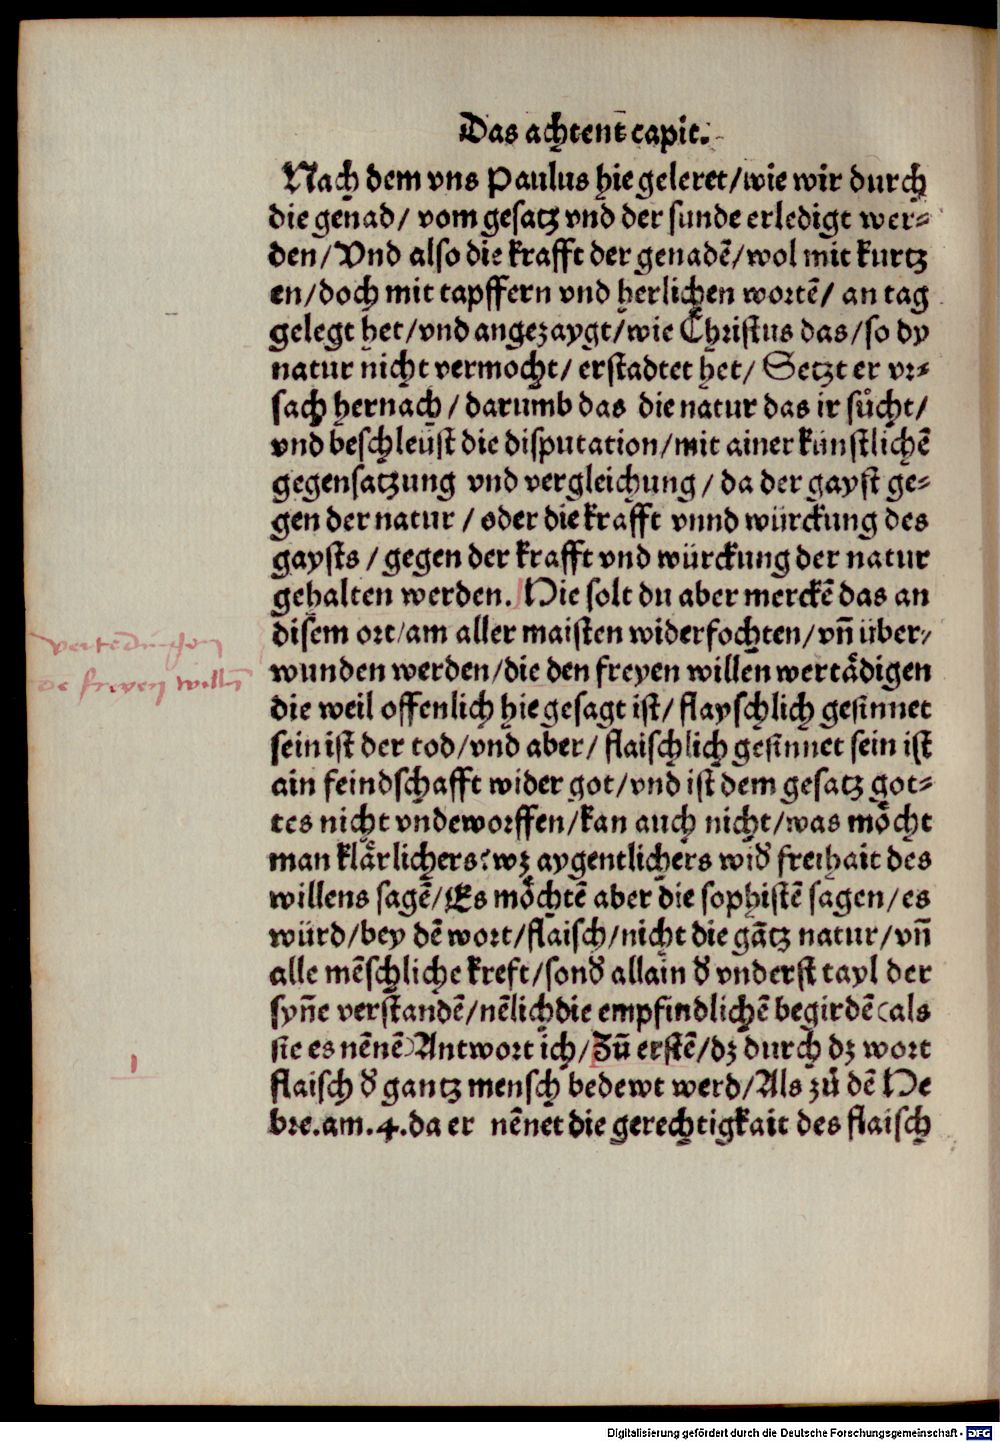 Das achtent capit.
Nach dem vns Paulus hie geleret/wie wir durch
die genad/ vom gesatz vnd der sunde erledigt wer⸗
den/Vnd also die krafft der genadē/wol mit kurtz
en/doch mit tapffern vnd herlichen wortē/ an tag
gelegt het/vnd angezaygt/wie Christus das/so dy
natur nicht vermocht/ erstadtet het/ Setzt er vr⸗
sach hernach/ darumb das die natur das ir sůcht/
vnd beschleüst die disputation/mit ainer künstlichē
gegensatzung vnd vergleichung/ da der gayst ge⸗
gen der natur / oder die krafft vnnd würckung des
gaysts / gegen der krafft vnd würckung der natur
gehalten werden. Hie solt du aber merckē das an
disem ort/am aller maisten widerfochten/vn̄ über⸗
wunden werden/die den freyen willen wertädigen
die weil offenlich hie gesagt ist/ flayschlich gesinnet
sein ist der tod/vnd aber/ flaischlich gesinnet sein ist
ain feindschafft wider got/vnd ist dem gesatz got⸗
tes nicht vndeworffen/kan auch nicht/was möcht
man klärlichers? wz aygentlichers wid̕ freihait des
willens sagē/Es möchtē aber die sophistē sagen/es
würd/bey dē wort/flaisch/nicht die gātz natur/vn̄
alle mēschliche kreft/sond̕ allain d̕ vnderst tayl der
syn̄e verstandē/nēlich die empfindlichē begirdē(als
sie es nēnē)Antwort ich/Zů erstē/dz durch dz wort
flaisch d̕ gantz mensch bedewt werd/Als zů dē He
bre.am.4.da er nēnet die gerechtigkait des flaisch
vertedingen
de freyen willn̄
1
Digitalisierung gefördert durch die Deutsche Forschungsgemeinschaft - DFG